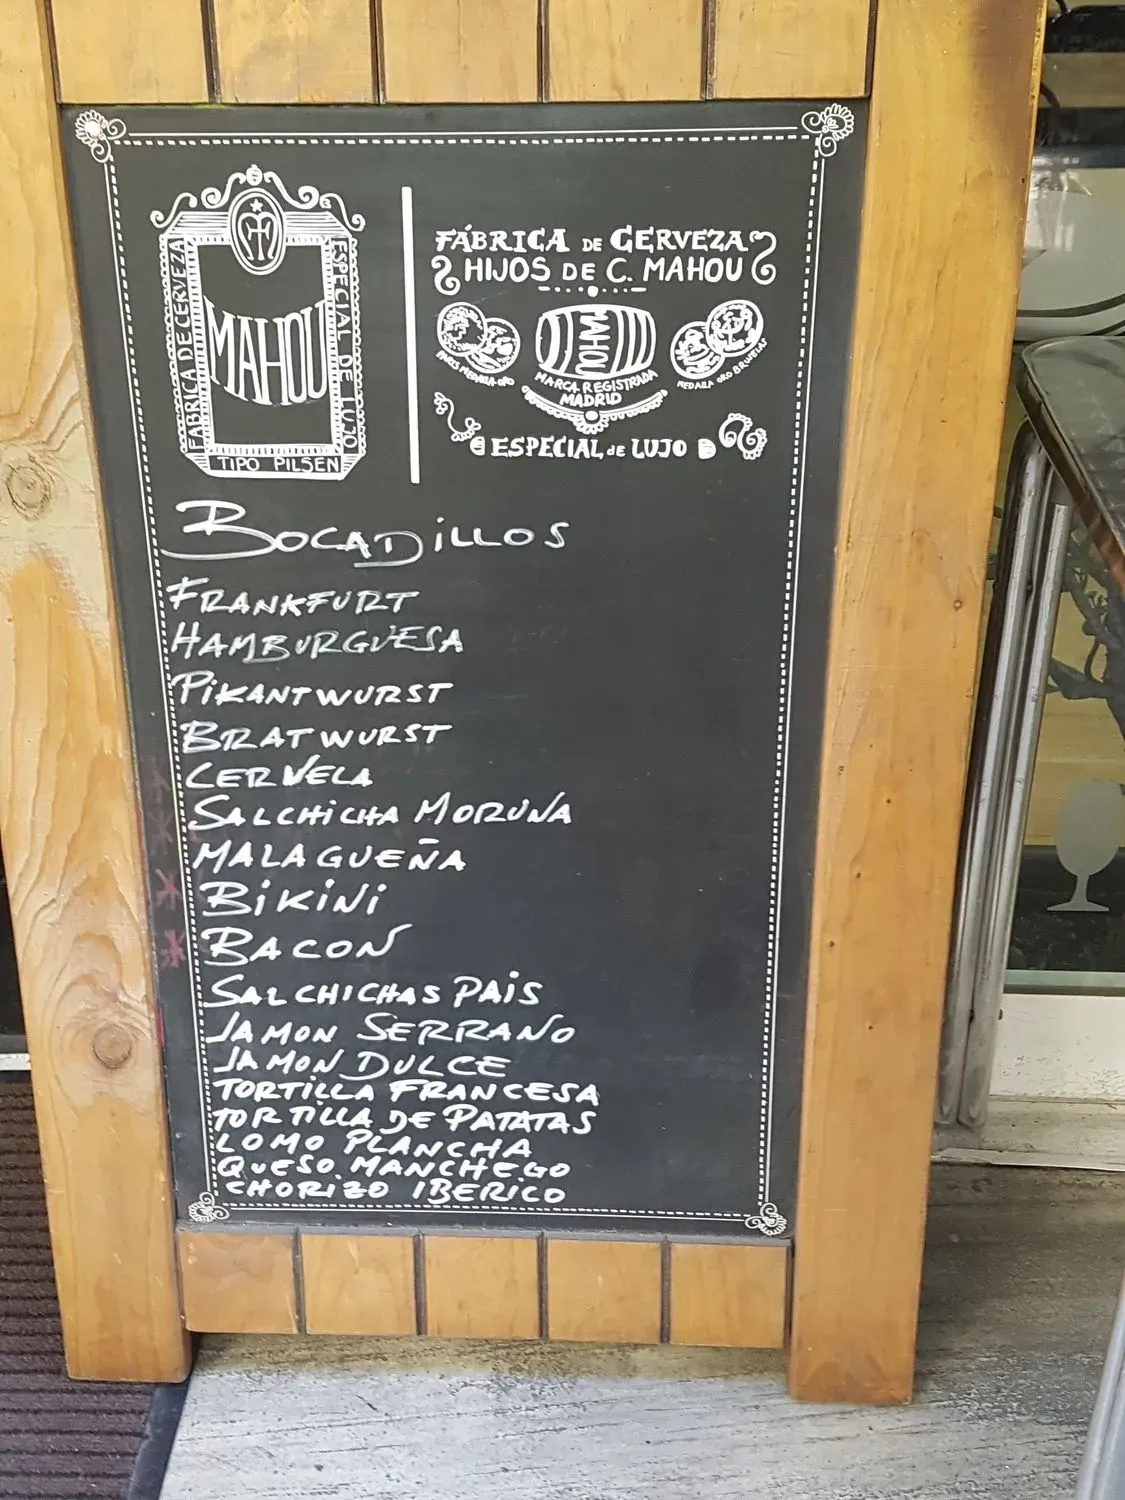 FÁBRICA DE CERVEZA
MAHOU
ESPECIAL DE LUJO
TIPO PILSEN
FÁBRICA DE CERVEZA
HIJOS DE C. MAHOU
MAHOU
PARIS MEDALLA ORO
MARCA REGISTRADA
MADRID
MEDALLA ORO BRUSELAS
ESPECIAL DE LUJO
BOCADILLOS
FRANKFURT
HAMBURGUESA
PIKANTWURST
BRATWURST
CERVELA
SALCHICHA MORUNA
MALAGUEÑA
BIKINI
BACON
SALCHICHAS PAIS
JAMON SERRANO
JAMON DULCE
TORTILLA FRANCESA
TORTILLA DE PATATAS
LOMO PLANCHA
QUESO MANCHEGO
CHORIZO IBERICO